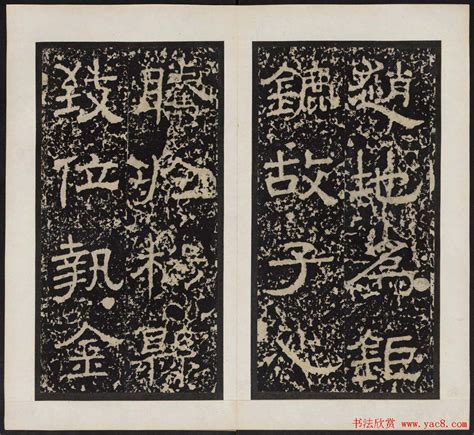 趙地為鉅
鏕故子心
騰於楊縣
致位執金
书法欣赏 www.yac8.com